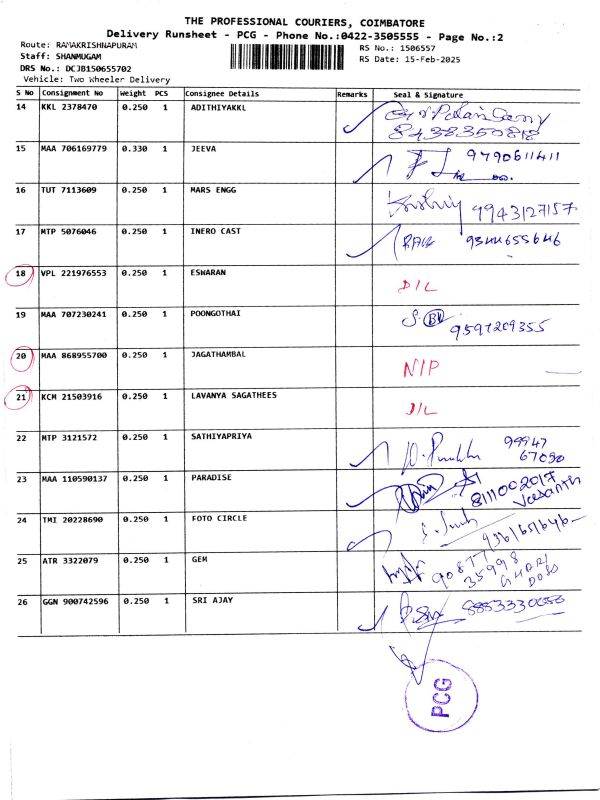 THE PROFESSIONAL COURIERS, COIMBATORE
Delivery Runsheet - PCG - Phone No.:0422-3505555 - Page No.:2
Route: RAMAKRISHNAPURAM
Staff: SHANMUGAM
DRS No.: DCJB150655702
Vehicle: Two Wheeler Delivery
RS No.: 1506557
RS Date: 15-Feb-2025
S No Consignment No Weight PCS Consignee Details Remarks Seal & Signature
14 KKL 2378470 0.250 1 ADITHIYAKKL
8438350818
15 MAA 706169779 0.330 1 JEEVA 9790611411
16 TUT 7113609 0.250 1 MARS ENGG 9943127157
17 MTP 5076046 0.250 1 INERO CAST RAVI 9344655646
18 VPL 221976553 0.250 1 ESWARAN D/L
19 MAA 707230241 0.250 1 POONGOTHAI 9597209355
20 MAA 868955700 0.250 1 JAGATHAMBAL N/P
21 KCM 21503916 0.250 1 LAVANYA SAGATHEES D/L
22 MTP 3121572 0.250 1 SATHIYAPRIYA 99947
67090
23 MAA 110590137 0.250 1 PARADISE 8111002017
24 TMI 20228690 0.250 1 FOTO CIRCLE
25 ATR 3322079 0.250 1 GEM 90877
35998
26 GGN 900742596 0.250 1 SRI AJAY
PCG